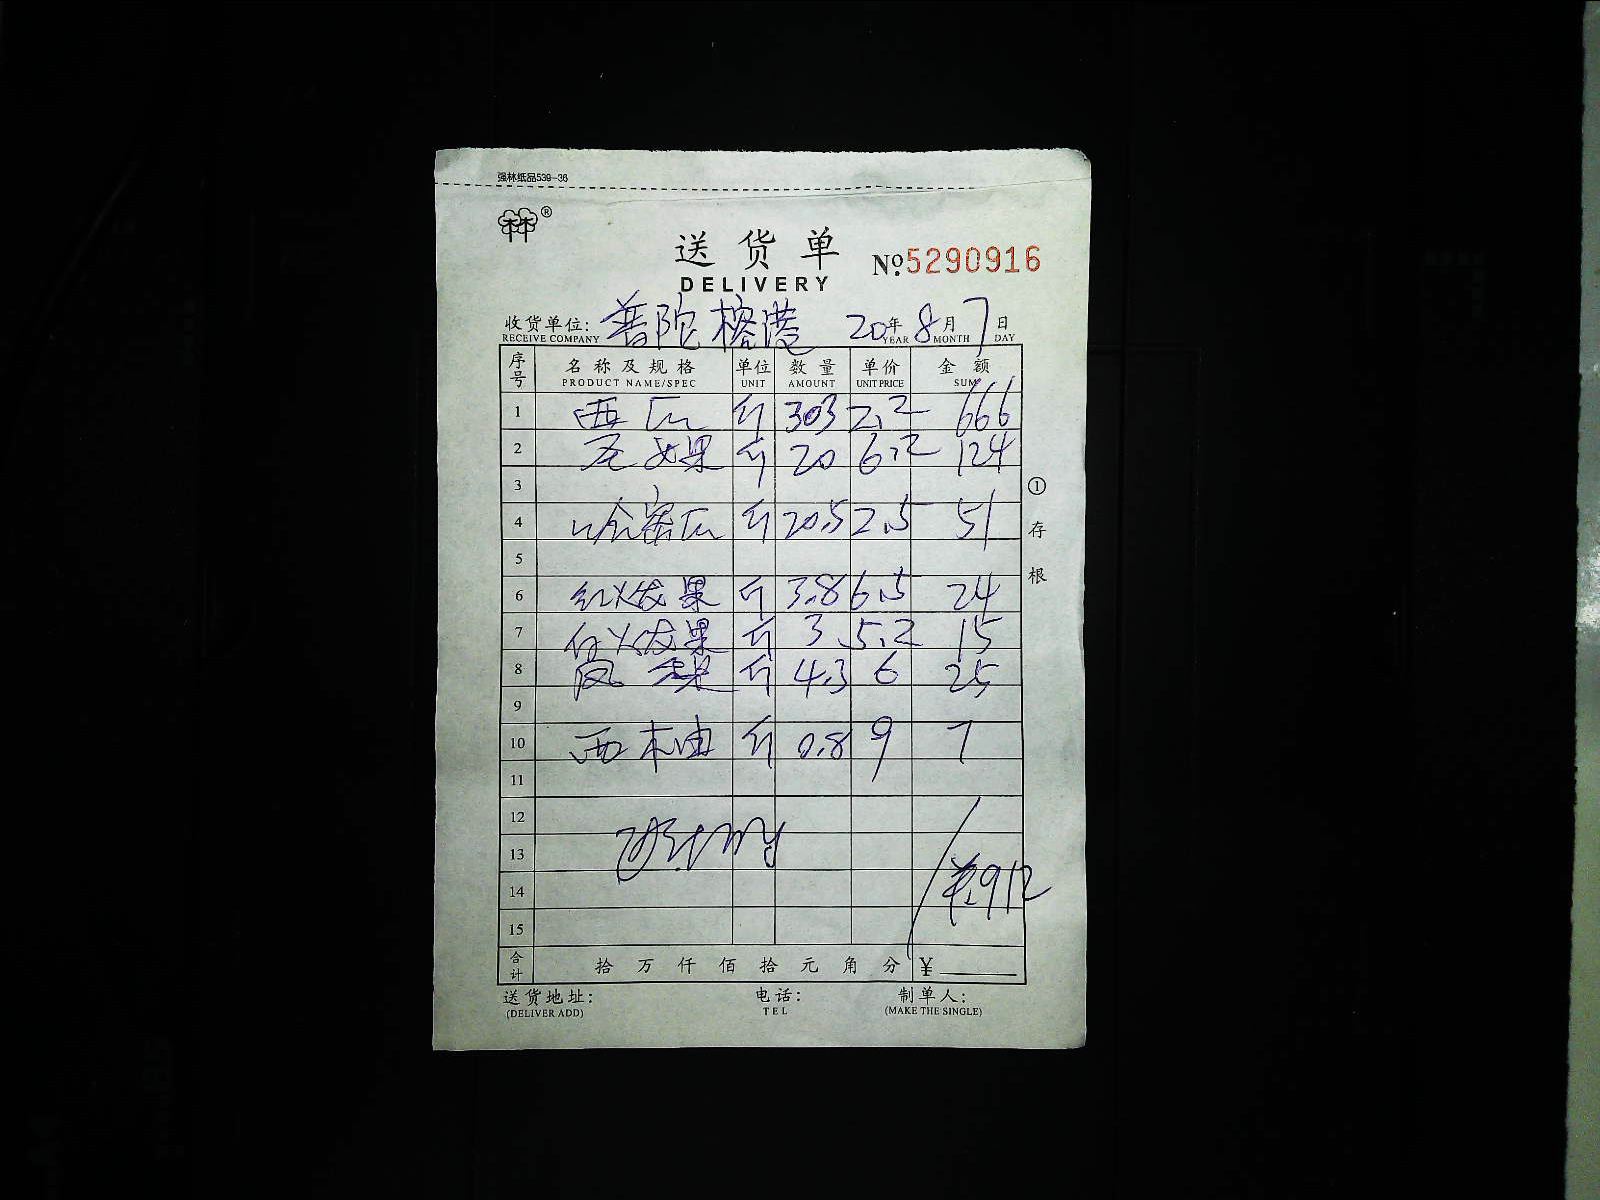 强林纸品539-36
林®
送货单
DELIVERY
No.5290916
收货单位: 普陀榕港 20年8月7日
RECEIVE COMPANY YEAR MONTH DAY
序号 名称及规格 单位 数量 单价 金额
PRODUCT NAME/SPEC UNIT AMOUNT UNIT PRICE SUM
1 西瓜 斤 303 2.2 666
2 圣女果 斤 20 6.2 124
3
4 哈密瓜 斤 20.5 2.5 51
5
6 红火龙果 斤 3.8 6.5 24
7 白火龙果 斤 3 5.2 15
8 斤 4.3 6 25
9
10 西柚 斤 0.8 9 7
11
12
13
14 912
15
合计 拾万仟佰拾元角分 ¥
①存根
送货地址: 电话: 制单人:
(DELIVER ADD) TEL (MAKE THE SINGLE)